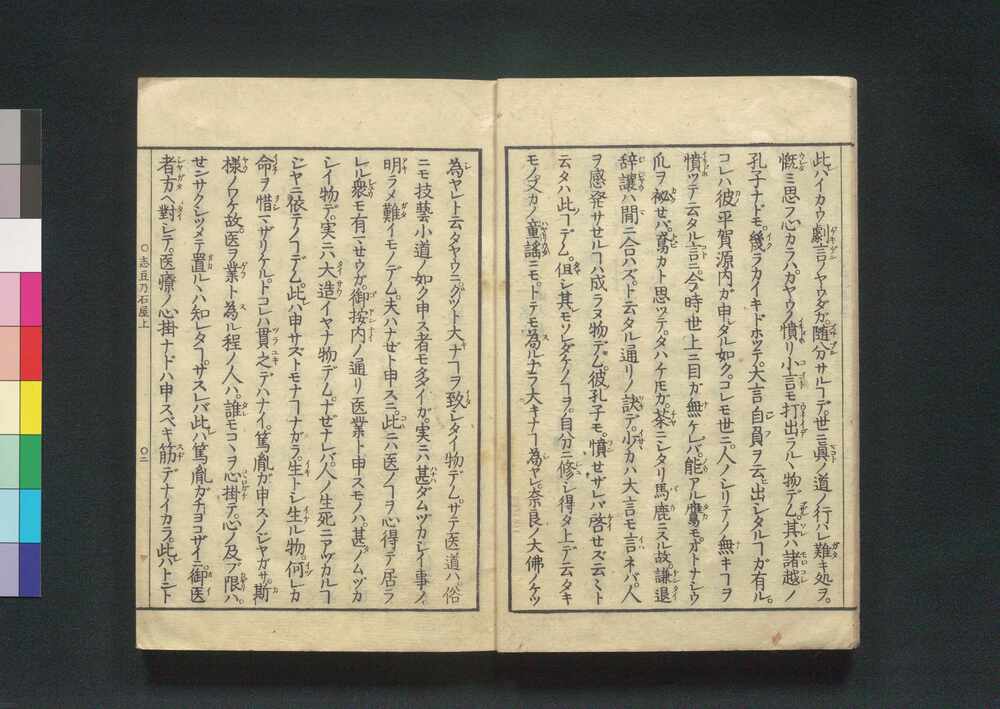 此ハイカウ劇言ノヤウダガ随分サルヿデ世ニ眞ノ道ノ行ハレ難キ処ヲ。
慨ミ思フ心カラハガヤウノ憤リ小言モ打出ラルヽ物デム。其ハ諸越ノ
孔子ナドモ幾ラカイキドホッテ。大言自負ヲ云ヒ出シタルヿガ有ル。
コレハ彼平賀源内ガ申シタル如ク。コレモ世ニ。人ノシリテノ無キヿヲ
憤ッテ云タル言ニ。今時世上ニ目ガ無ケレバ。能アル鷹モ。オトナシウ
爪ヲ祕セバ。鳶カト思ッテ。タハケモガ。茶ニシタリ馬鹿ニスル故。謙退
辞讓ハ間ニ合ハズ。ト云タル通リノ訣デ。少カハ大言モ言ネバ。人
ヲ感発サセルヿハ成ラヌ物デム。彼孔子モ。憤セザレバ啓セズ云ミト
云タハ此ヿデム。但シ其モソレダケノヿヲ。自分ニ修シ得タ上デ云タキ
モノ。又カノ童謡ニモ。トテモ為ルナラ大キナヿ為ヤレ。奈良ノ大佛ノケツ
為ヤレト云タヤウニ。グット大ナヿヲ致シタイ物デム。サテ医道ハ。俗
ニモ技藝小道ノ如ク申ス者モ多イガ。実ニハ甚ダムツカシイ事ノ
明ラメ難イモノデム。夫ハナゼト申スニ。此ニハ医ノヿヲ心得デ居ラ
ルル衆モ有マセウガ。御按内ノ通リ医業ト申スモノハ。甚ダノムヅカ
シイ物デ。実ニハ大造イヤナ物デム。ナゼナレバ。人ノ生死ニアヅカルヿ
ジヤニ依テノヿデム。此ハ申サズトモナヿナガラ。生トシ生ル物。何レカ
命ヲ惜マザリケル。ドコレハ貫之デハナイ。篤胤ガ申スノジヤガサ。斯
樣ノワケ故。医ヲ業ト為ル程ノ人ハ。誰モコヽヲ心掛テ。心ノ及ブ限ハ。
センサクシツメテ置ルヽハ知レタヿ。ザスレバ此ハ篤胤ガチヨコザイニ御医
者方ヘ對シテ。医療ノ心掛ナドハ申スベキ筋デナイカラ。此ハトント
○志豆乃石屋上
○二